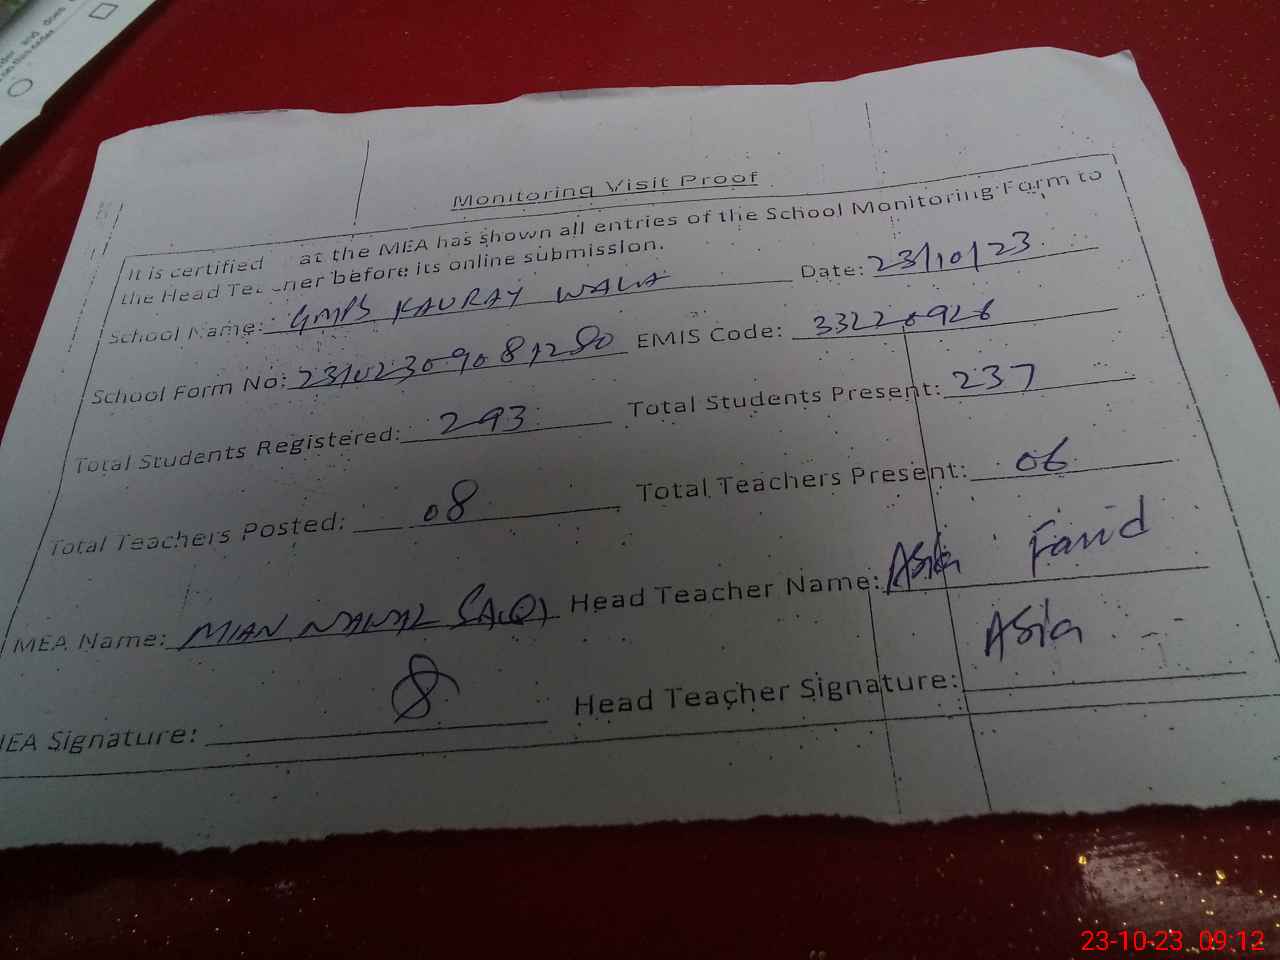 Monitoring Visit Proof
It is certified at the MEA has shown all entries of the School Monitoring Form to
the Head Teacher before its online submission.
School Name: GMPS KAURAY WALA Date: 23/10/23
School Form No: 23102309081280 EMIS Code: 33220926
Total Students Registered: 293 Total Students Present: 237
Total Teachers Posted: 08 Total Teachers Present: 06
MEA Name: MIAN Head Teacher Name: Asia Farid
MEA Signature: Head Teacher Signature: Asia
23-10-23 09:12